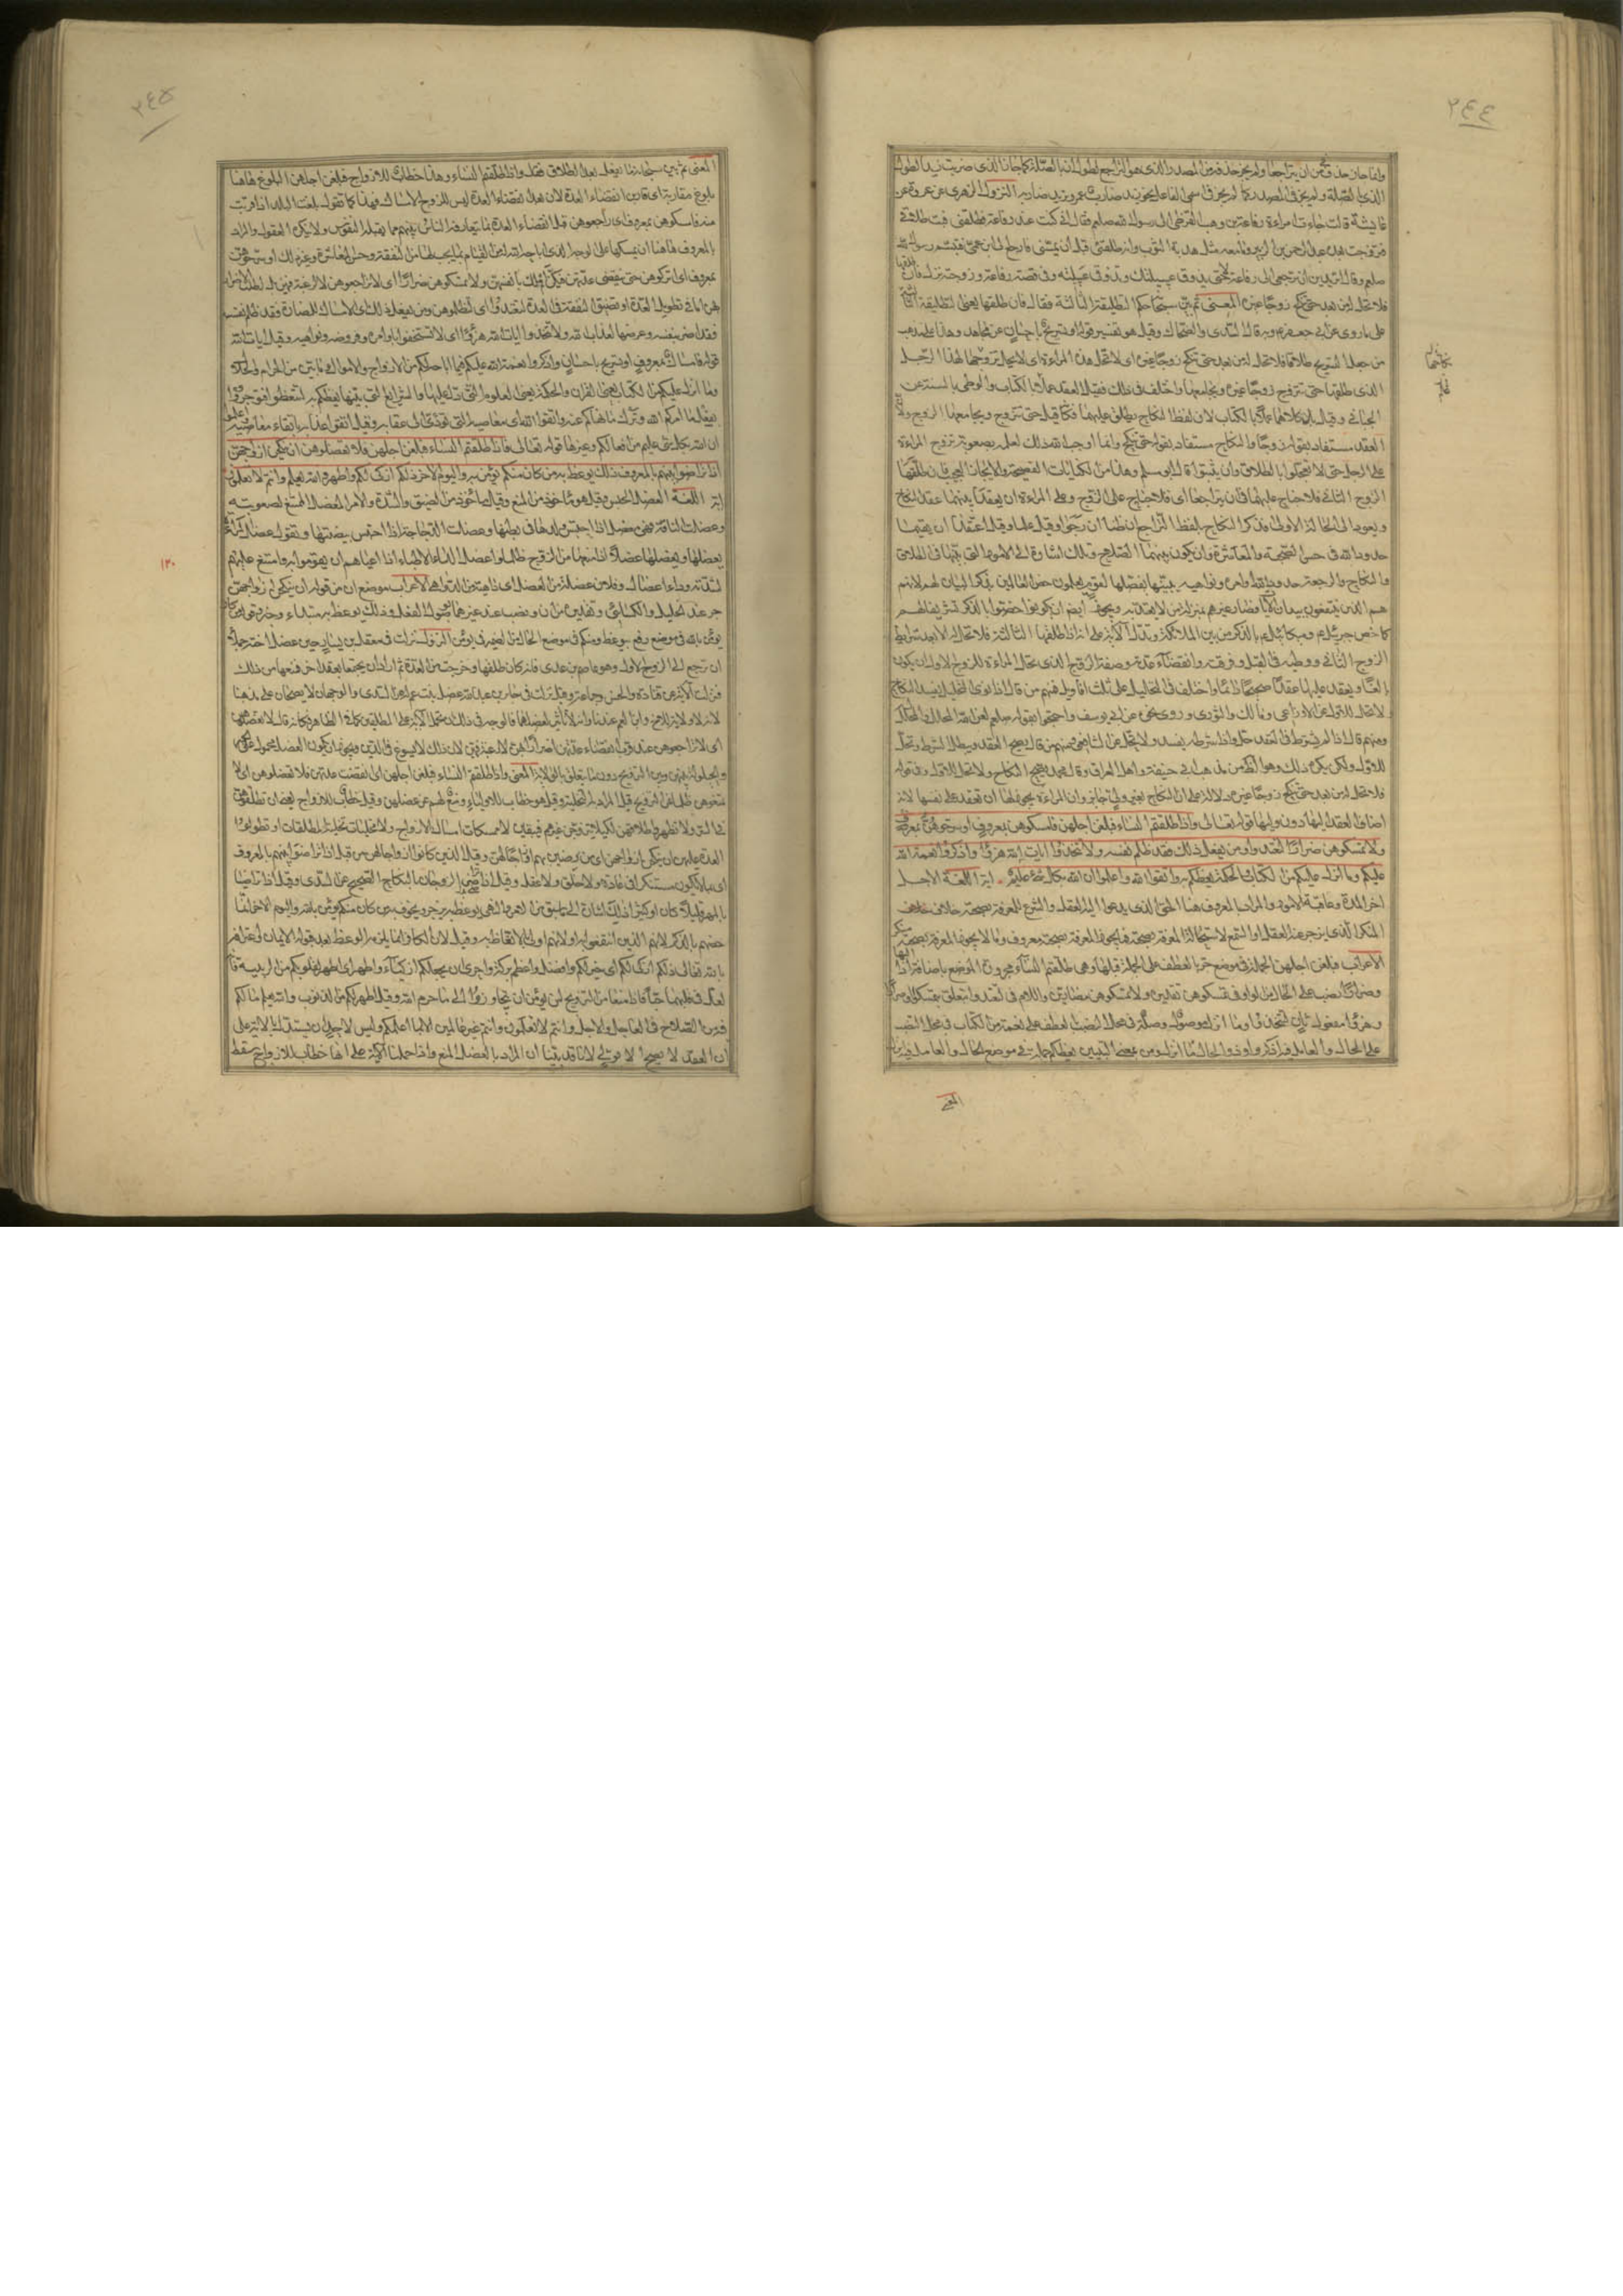 ٢٤٤
وانما جاز حذف في من ان يتراجعا ولم يجز حذفه من المصدر الذي هو التراجع لطول ان بالصلة كما جاز الذي ضربت زيد لطول
الذي بالصلة ولم يجز في المصدر كما لم يجز في اسم الفاعل نحو زيد ضارب عمرو يريد ضاربه النزول الزهري عن عروة عن
عايشة قالت جاءت امراءة رفاعة بن وهب القرظي الى رسول الله صلعم فقالت اني كنت عند رفاعة فطلقني فبت طلاقي
فتزوجت بعده عبد الرحمن بن الزبير وانما معه مثل هدبة الثوب وانه طلقني قبل ان يمسني فارجع الى ابن عمي فتبسم رسول الله
صلعم وقال اتريدين ان ترجعي الى رفاعة لا حتى يذوق عسيلتك وتذوقي عسيلته وفي قصة رفاعة وزوجته نزل فان طلقها
فلا تحل له من بعد حتى تنكح زوجا غيره المعنى ثم بين سبحانه حكم التطليقة الثالثة فقال فان طلقها يعني التطليقة الثالثة
على ما روي عن ابي جعفر وبه قال السدي والضحاك وقيل هو تفسير قوله او تسريح باحسان عن مجاهد وهذا على مذهب
من جعل التسريح طلاقا فلا تحل له من بعد حتى تنكح زوجا غيره اي لا تحل هذه المراءة اي لا يحل تزوجها لهذا الرجل
الذي طلقها حتى تتزوج زوجا غيره ويجامعها واختلف في ذلك فقيل العقد علم بالكتاب والوطي بالسنة عن
الجبائي وقيل بل كلاهما علم بالكتاب لان لفظ النكاح يطلق عليهما فكانه قيل حتى تتزوج ويجامعها الزوج ولان
العقد مستفاد بقوله زوجا والنكاح مستفاد بقوله حتى تنكح وانما اوجب الله ذلك لعلمه بصعوبة تزوج المراءة
على الرجل حتى لا يعجلوا بالطلاق وان يتثبتوا قال ابو مسلم وهذا من الكنايات الفصيحة والايجاز العجيب فان طلقها
الزوج الثاني فلا جناح عليهما فان يتراجعا اي فلا جناح على الزوج وعلى المراءة ان يعقدا بينهما عقد النكاح
ويعودا الى الحالة الاولى فذكر النكاح بلفظ التراجع ان ظنا ان رجوا وقيل علما وقيل اعتقدا ان يقيما
حدود الله في حسن الصحبة والمعاشرة وان يكون بينهما الصلاح وتلك اشارة الى الامور التي بينها في الطلاق
والنكاح والرجعة حدود الله اوامره ونواهيه يبينها يفصلها لقوم يعلمون خص العالمين بذكر البيان لهم لانهم
هم الذين ينتفعون ببيان الآيات فصار غيرهم بمنزلة من لا يعتد به ويجوز ايضا ان يكونوا خصوا بالذكر تشريفا لهم
كما خص جبرئيل وميكائيل بالذكر من بين الملائكة وتدل الآية على انه اذا طلقها الثالثة فلا تحل له الا بعد شرايط
الزوج الثاني ووطيه في القبل وفرقته وانقضاء عدته وصفة الزوج الذي تحل المراءة للزوج الاول ان يكون
بالغا ويعقد عليها عقدا صحيحا دائما واختلف في التحليل على ثلث اقاويل فمنهم من قال اذا نوى التحليل يفسد النكاح
لا تحل للاول عن الاوزاعي ومالك والثوري وروي نحوه عن ابي يوسف واحتجوا بقوله صلعم لعن الله المحلل والمحلل له
ومنهم قال اذا لم يشرط في العقد حل واذا شرطه يفسد ولا تحل عن الشافعي ومنهم من قال يصح العقد ويبطل الشرط وتحل
للاول ولكن يكره ذلك وهو الظاهر من مذهب ابي حنيفة واهل العراق وقال محمد يصح النكاح ولا تحل للاول وفي قوله
فلا تحل له من بعد حتى تنكح زوجا غيره دلالة على ان النكاح بغير ولي جايز وان المراءة يجوز لها ان تعقد على نفسها لانه
اضاف العقد اليها دون وليها قوله تعالى واذا طلقتم النساء فبلغن اجلهن فامسكوهن بمعروف او سرحوهن بمعروف
ولا تمسكوهن ضرارا لتعتدوا ومن يفعل ذلك فقد ظلم نفسه ولا تتخذوا ايات الله هزوا واذكروا نعمة الله
عليكم وما انزل عليكم من الكتاب والحكمة يعظكم به واتقوا الله واعلموا ان الله بكل شئ عليم اية اللغة الاجل
اخر المدة وعاقبة الامور والمراد بالمعروف هنا الحق الذي يدعوا اليه العقل والشرع للمعرفة بصحته خلاف
المنكر الذي يزجر عنه العقل او السمع لاستحالة المعرفة بصحته فما يجوز المعرفة بصحته معروف وما لا يجوز المعرفة بصحته منكر
الاعراب فبلغن اجلهن الجملة في موضع جر بالعطف على الجملة قبلها وهي طلقتم النساء مجرورة الموضع باضافة اذا اليها
وضرارا نصب على الحال من الواو في تمسكوهن تقديره ولا تمسكوهن مضارين واللام في لتعتدوا يتعلق بتمسكوا وضرارا
وهزوا مفعول ثان لتتخذوا وما انزل موصول وصلة في محل النصب بالعطف على نعمة من الكتاب في محل النصب
على الحال والعامل فيه اذكروا وذو الحال ما انزل ومن بمعنى التبيين يعظكم جملة في موضع الحال والعامل فيه انزل
المعنى
٢٤٥
المعنى ثم بين سبحانه ما يفعل بعد الطلاق فقال واذا طلقتم النساء وهذا خطاب للازواج فبلغن اجلهن البلوغ هاهنا
بلوغ مقاربة اي قاربن انقضاء العدة لان بعد انقضاء العدة ليس للزوج الامساك وهذا كما تقول بلغت البلد اذا قربت
منه فامسكوهن بمعروف اي راجعوهن قبل انقضاء العدة بما يتعارفه الناس بينهم مما يقبله النفوس ولا ينكره العقول والمراد
بالمعروف هاهنا ان يمسكها على الوجه الذي اباحه الله له من القيام بما يجب لها من النفقة وحسن المعاشرة وغير ذلك او سرحوهن
بمعروف اي اتركوهن حتى ينقضي عدتهن فيكن املك بانفسهن ولا تمسكوهن ضرارا اي لا تراجعوهن لا لرغبة فيهن بل لطلب الاضرار
بهن اما في تطويل العدة او بتضييق النفقة في العدة لتعتدوا اي لتظلموهن ومن يفعل ذلك اي الامساك للمضارة فقد ظلم نفسه
فقد اضر بنفسه وعرضها لعذاب الله ولا تتخذوا ايات الله هزوا اي لا تستخفوا باوامره وفروضه ونواهيه وقيل ايات الله
قوله فامساك بمعروف او تسريح باحسان واذكروا نعمة الله عليكم فيما اباحه لكم من الازواج والاموال وما بين من الحرام والحلال
وما انزل عليكم من الكتاب يعني القران والحكمة يعني العلوم التي دل عليها والشرايع التي بينها يعظكم به لتتعظوا فتوجروا
بفعل ما امركم الله وترك ما نهاكم عنه واتقوا الله اي معاصيه التي تؤدي الى عقابه وقيل اتقوا عذابه باتقاء معاصيه واعلموا
ان الله بكل شئ عليم من افعالكم وغيرها قوله تعالى واذا طلقتم النساء فبلغن اجلهن فلا تعضلوهن ان ينكحن ازواجهن
اذا تراضوا بينهم بالمعروف ذلك يوعظ به من كان منكم يؤمن بالله واليوم الاخر ذلكم ازكى لكم واطهر والله يعلم وانتم لا تعلمون
اية اللغة العضل الحبس وقيل هو مأخوذ من المنع وقيل مأخوذ من الضيق والشدة والامر المعضل الممتنع لصعوبته
وعضلت الناقة فهي معضل اذا احتبس ولدها في بطنها وعضلت الدجاجة اذا احتبس بيضتها وتقول عضل المراءة
يعضلها ويعضلها عضلا اذا منعها من التزويج ظلما واعضل الداء الاطباء اذا اعياهم ان يقوموا به وامتنع عليهم
لشدته وداء عضال وفلان عضلة من العضل اي داهية من الدواهي الاعراب موضع ان من قوله ان ينكحن ازواجهن
جر عند الخليل والكسائي وتقديره من ان ونصب عند غيرهما بوصول الفعل وذلك يوعظ به مبتداء وخبر
يؤمن بالله في موضع رفع بيوعظ ومنكم في موضع الحال من الضمير في يؤمن النزول نزلت في معقل بن يسار حين عضل اخته جملاء
ان ترجع الى الزوج الاول وهو عاصم بن عدي فانه كان طلقها وخرجت من العدة ثم ارادا ان يجتمعا بعقد اخر فمنعها من ذلك
فنزلت الآية عن قتادة والحسن وجماعة وقيل نزلت في جابر بن عبد الله عضل بنت عم له عن السدي والوجهان لا يصحان على مذهبنا
لانه لا ولاية للاخ وابن العم عندنا وانه لا تأثير لعضلهما فالوجه في ذلك ان تحمل الآية على المطلقين كما في الظاهر فكانه قال لا تعضلوهن
اي لا تراجعوهن عند قرب انقضاء عدتهن اضرارا بهن لا رغبة فيهن لان ذلك لا يسوغ في الدين ويجوز ان يكون العضل محمولا على
والحيلولة بينهن وبين التزويج دون ما يتعلق بالولاية المعنى واذا طلقتم النساء فبلغن اجلهن اي انقضت عدتهن فلا تعضلوهن اي لا
تمنعوهن ظلما عن التزويج قيل المراد به التخلية وقيل هو خطاب للاولياء ومنع لهم عن عضلهن وقيل خطاب للازواج يعني ان تطلقوهن
في السر ولا تظهروا طلاقهن لكيلا يتزوجن غيرهم فيبقين لا ممسكات امساك الازواج ولا مخليات تخلية المطلقات او تطولوا
العدة عليهن ان ينكحن ازواجهن اي من رضين بهم ازواجا لهن وقيل الذين كانوا ازواجا لهن من قبل اذا تراضوا بينهم بالمعروف
اي بما لا يكون مستنكرا في عادة ولا خلق ولا عقل وقيل اذا تراضى الزوجان بالنكاح الصحيح عن السدي وقيل اذا تراضيا
بالمهر قليلا كان او كثيرا ذلك اشارة الى ما سبق من الامر والنهي يوعظ به يزجر ويخوف به من كان منكم يؤمن بالله واليوم الاخر انما
خصهم بالذكر لانهم الذين انتفعوا به او لانهم اولى بالاتعاظ به وقيل لان الكافر انما يلزمه الوعظ بعد قبوله الايمان واعترافه
بالله تعالى ذلكم ازكى لكم اي خير لكم وافضل واعظم بركة واحرى ان يجعلكم ازكياء واطهر اي اطهر لقلوبكم من الريبة فانه
لعل في قلبهما حبا فاذا منعا من التزويج لم يؤمن ان يتجاوزا الى ما حرم الله وقيل اطهر لكم من الذنوب والله يعلم ما لكم
فيه من الصلاح في العاجل والاجل وانتم لا تعلمون وانتم غير عالمين الا بما اعلمكم وليس لاحد ان يستدل بالآية على
ان العقد لا يصح الا بولي لانا قد بينا ان المراد بالعضل المنع واذا حملنا الآية على انها خطاب للازواج سقط
١٢٠